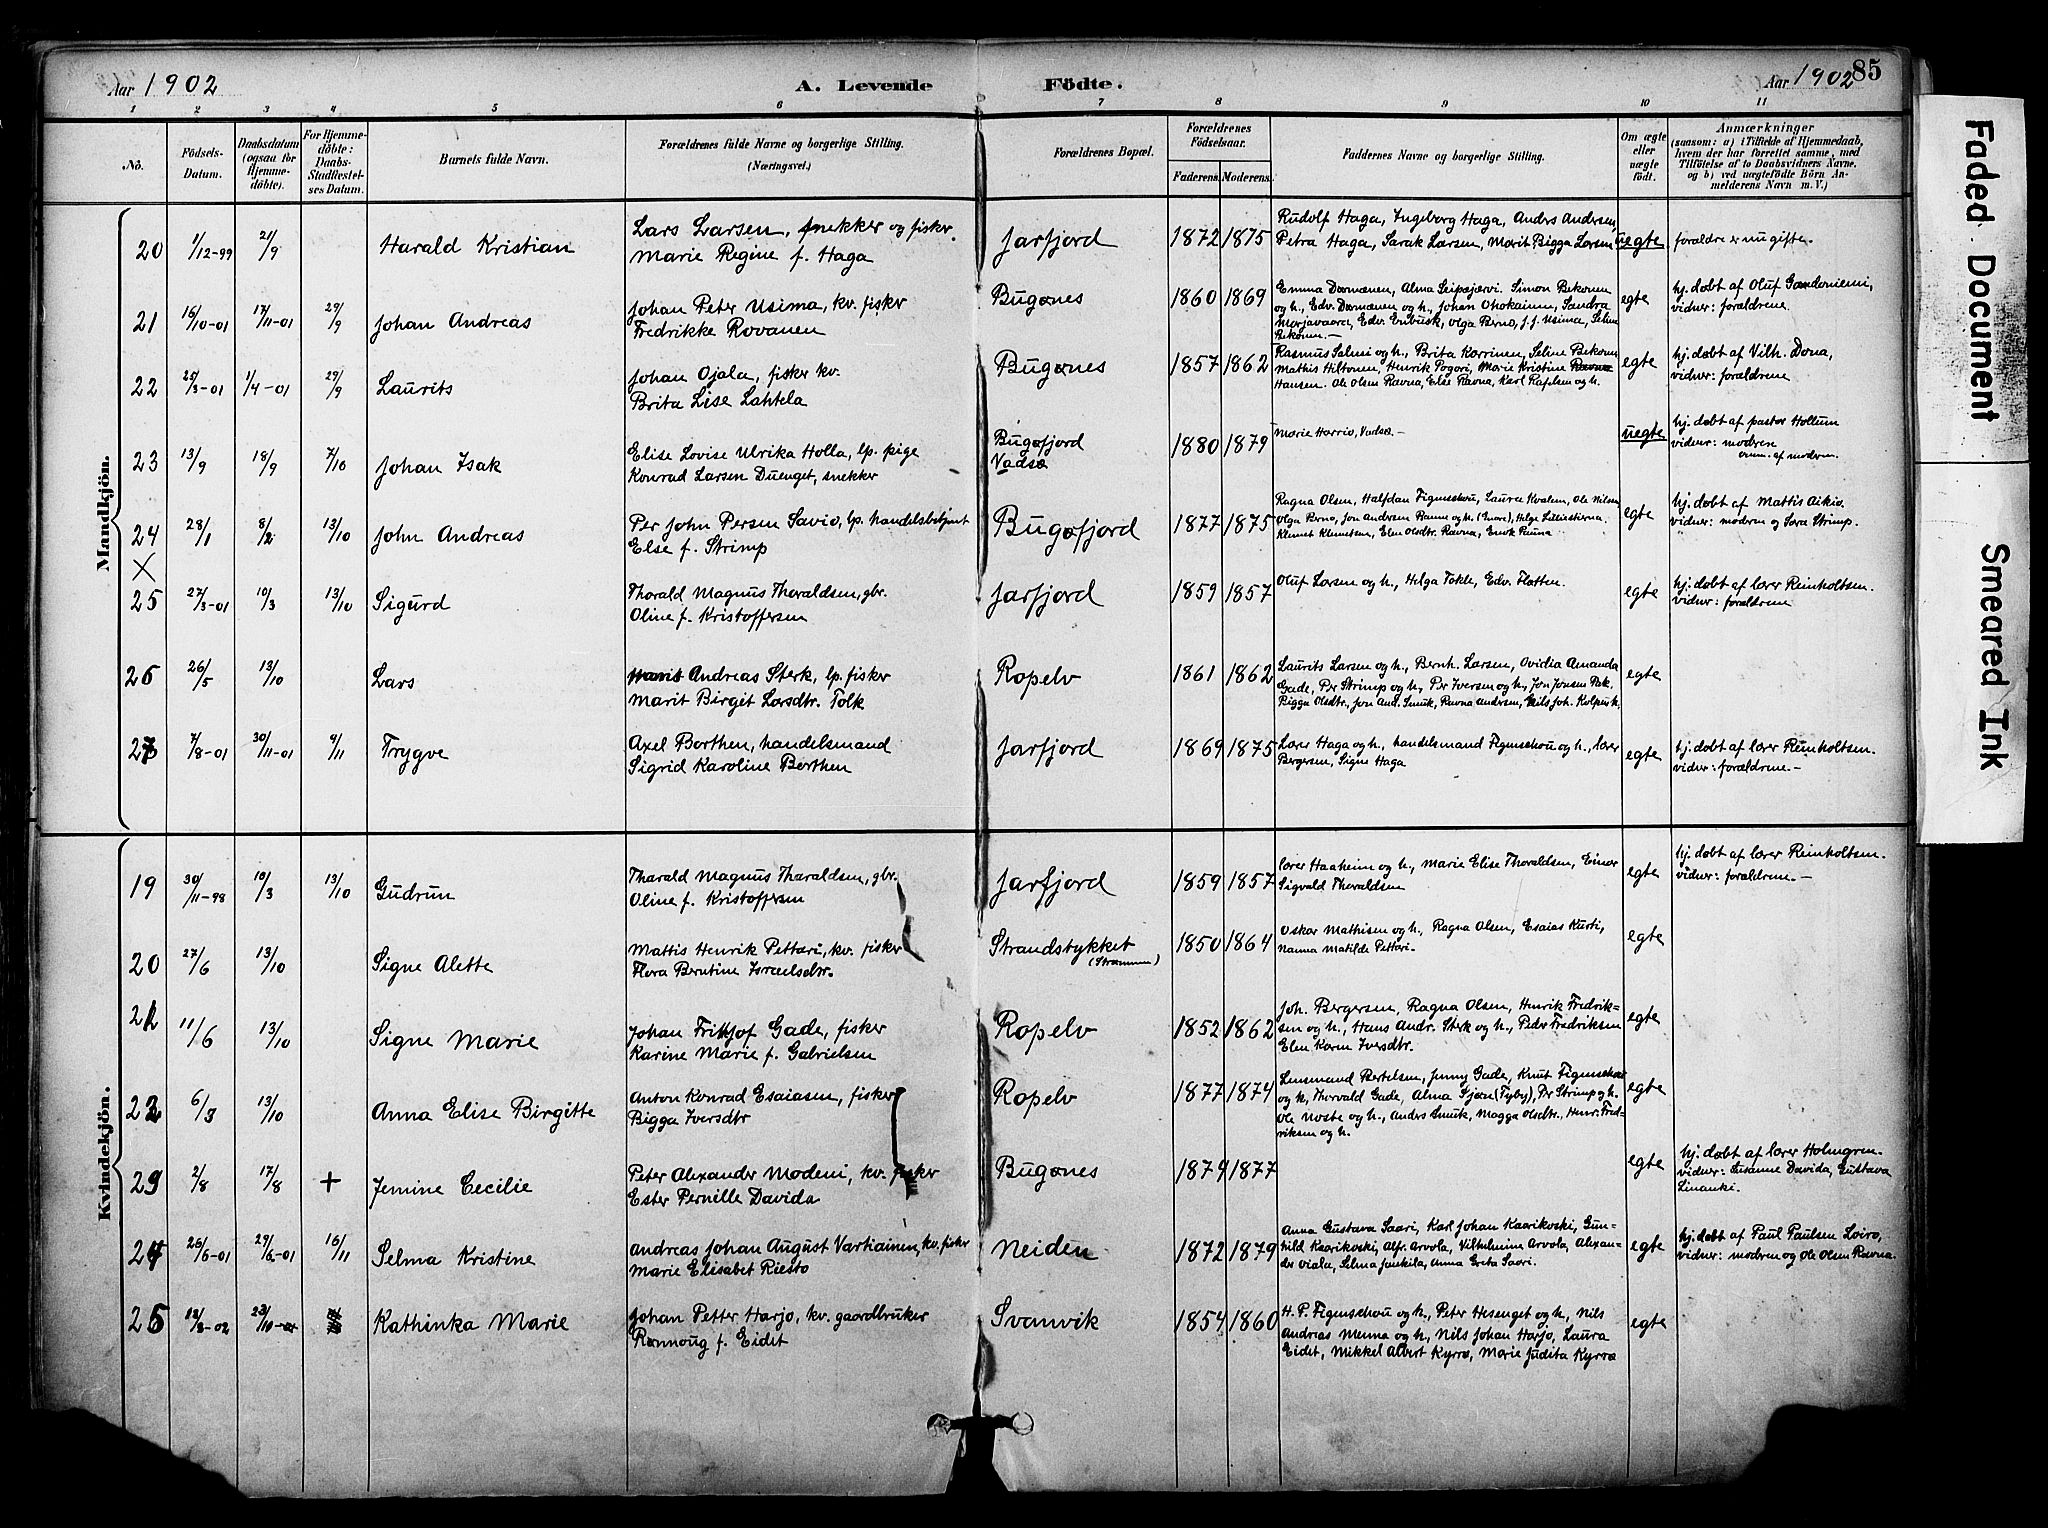 Aar 1902
A. Levende Födte.
Aar 1902
85
1 2 3 4 5 6 7 8 9 10 11
No.
Födsels-Datum.
Daabsdatum (ogsaa for Hjemme-döbte).
For Hjemme-döbte: Daabs-Stadfæstel-ses Datum.
Barnets fulde Navn.
Forældrenes fulde Navne og borgerlige Stilling. (Næringsvei.)
Forældrenes Bopæl.
Forældrenes Födselsaar.
Faderens. Moderens.
Faddernes Navne og borgerlige Stilling.
Om ægte eller uægte födt.
Anmærkninger
(saasom: a) i Tilfælde af Hjemmedaab, hvem der har forrettet samme, med Tilföielse af to Daabsvidners Navne. og b) ved uægtefödte Börn An-melderens Navn m. V.)
Mandkjön.
20 1/12-99 21/9 Harald Kristian
Lars Larsen, snekker og fisker.
Marie Regine f. Haga
Jarfjord 1872 1875
Rudolf Haga, Ingeborg Haga, Anders Andersen,
Petra Haga, Sarak Larsen, Marit Bigga Larsen
uegte
forældre er nu gifte.
21 16/10-01 17/11-01 29/9 Johan Andreas
Johan Peter Usima, kv. fisker
Fredrikke Rovanen
Bugønes 1860 1869
Emma Dørmænen, Alma Seipæjærvi. Simon Bekonen
og h., Edv. Dørmænen og h., Johan Ohokainen, Sandra
Morjavaara, Edv. Enbusk, Olga Perno, J. J. Usima, Seline
Bekonen.—
egte
hj. døbt af Oluf
vidner: forældrene
22 25/3-01 1/4-01 29/9 Laurits
Johan Ojala, fisker kv.
Brita Lise Lahtela
Bugønes 1857 1862
Rasmus Salmi og h., Brita Korrinen, Seline Bekonen
Mathis Hiltonen, Henrik Pogori, Marie Kristine
Hansen. Ole Olsen Ravna, Else Ravna, Karl Rafelsen og h.
egte
hj. døbt af Vilh. Dona,
vidner: forældrene
23 13/9 18/9 7/10 Johan Isak
Elise Lovise Ulrika Holla, lp. pige
Konrad Larsen Duenget, snekker
Bugøfjord
Vadsø
1880 1879
Marie Harrio, Vadsø.—
uegte
hj. døbt af pastor Hollum
vidner: modren
anm. af modren.
24 28/1 8/2 13/10 John Andreas
Per John Persen Savio, lp. handelsbetjent
Else f. Strimp
Bugøfjord 1877 1875
Ragna Olsen, Halfdan Figenschou, Laura Kvalen, Ole Nilsen
Olga Perno, Jon Andersen Ranne og h. (Enare), Helge Lilliestierna.
Klemet Klemetsen, Elen Olsdtr. Ravna, Enok Rauna
egte
hj. døbt af Mattis Aikio.
vidner: modren og Sara Strimp.
25 27/3-01 10/3 13/10 Sigurd
Thorald Magnus Thoraldsen, gbr.
Oline f. Kristoffersen
Jarfjord 1859 1857
Oluf Larsen og h., Helga Tokle, Edv. Flotten.
egte
hj. døbt af lærer Reinholtsen.
vidner: forældrene
26 26/5 13/10 Lars
Andreas Sterk, lp. fisker
Marit Birget Larsdtr. Tolk
Ropelv 1861 1862
Laurits Larsen og h., Bernh. Larsen, Ovidia Amanda
Gade, Per Strimp og h., Per Iversen og h., Jon Jonsen Rak,
Bigga Olsdtr., Jon And. Smuk, Ravna Andersen, Nils Joh. Kolpus h.
egte
27 7/8-01 30/11-01 9/11 Trygve
Axel Borthen, handelsmand
Sigrid Karoline Borthen
Jarfjord 1869 1875
Lærer Haga og h., handelsmand Figenschou og h., lærer
Bergersen, Signe Haga
egte
hj. døbt af lærer Reinholtsen.
vidner: forældrene.—
Kvindekjön.
19 30/11-98 10/3 13/10 Gudrun
Tharald Magnus Tharaldsen, gbr.
Oline f. Kristoffersen
Jarfjord 1859 1857
lærer Haaheim og h., Marie Elise Thoraldsen, Einar
Sigvald Thoraldsen
egte
hj. døbt af lærer Reinholtsen.
vidner: forældrene.—
20 27/6 13/10 Signe Alette
Mattis Henrik Pettari, kv. fisker
Flora Berntine Israelsdtr.
Strandstykket
(Strømmen)
1850 1864
Oskar Mathisen og h., Ragna Olsen, Esaias Kurti,
Nanna Matilde Pettari.
egte
21 11/6 13/10 Signe Marie
Johan Frithjof Gade, fisker
Karine Marie f. Gabrielsen
Ropelv 1852 1862
Joh. Bergersen, Ragna Olsen, Henrik Fredrik=
sen og h., Hans Andr. Sterk og h., Peder Fredriksen
Elen Karen Iversdtr.
egte
22 6/3 13/10 Anna Elise Birgitte
Anton Konrad Esaiasen, fisker
Bigga Iversdtr
Ropelv 1877 1874
Lensmand Bertelsen, Jenny Gade, Knut Figenschou
og h, Thorvald Gade, Alma Fjæn (Fyby), Per Strimp og h.
Ole Noste og h., Anders Smuk, Magga Olsdtr., Henr. Fred-
riksen og h.
egte
23 2/8 17/8 + Jemine Cecilie
Peter Alexander Modeni, kv. fisker
Ester Pernille Davida
Bugønes 1879 1877
egte
hj. døbt af lærer Holmgren.
vidner: Susanne Davida, Gustava
Linanki.
24 26/6-01 29/6-01 16/11 Selma Kristine
Andreas Johan August Vartiainen, kv. fisker
Marie Elisabet Riesto
Neiden 1872 1879
Anna Gustava Saari, Karl Johan Kaarikoski, Gun=
hild Kaarikoski, Alfr. Arvola, Vilhelmine Arvola, Alexan=
der Viala, Selma Jankila, Anna Greta Saari.
egte
hj. døbt af Paul Paulsen Loiro,
vidner: modren og Ole Olsen Ravna.
25 12/3-02 23/10 Kathinka Marie
Johan Petter Harjo, kv. gaardbruker
Rønnoug f. Eidet
Svanvik 1854 1860
H. P. Figenschou og h., Peter Hesenget og h., Nils
Andreas Menna og h., Nils Johan Harjo, Laura
Eidet, Mikkel Albert Kyrrø, Marie Judita Kyrrø
egte
Faded Document
Smeared Ink